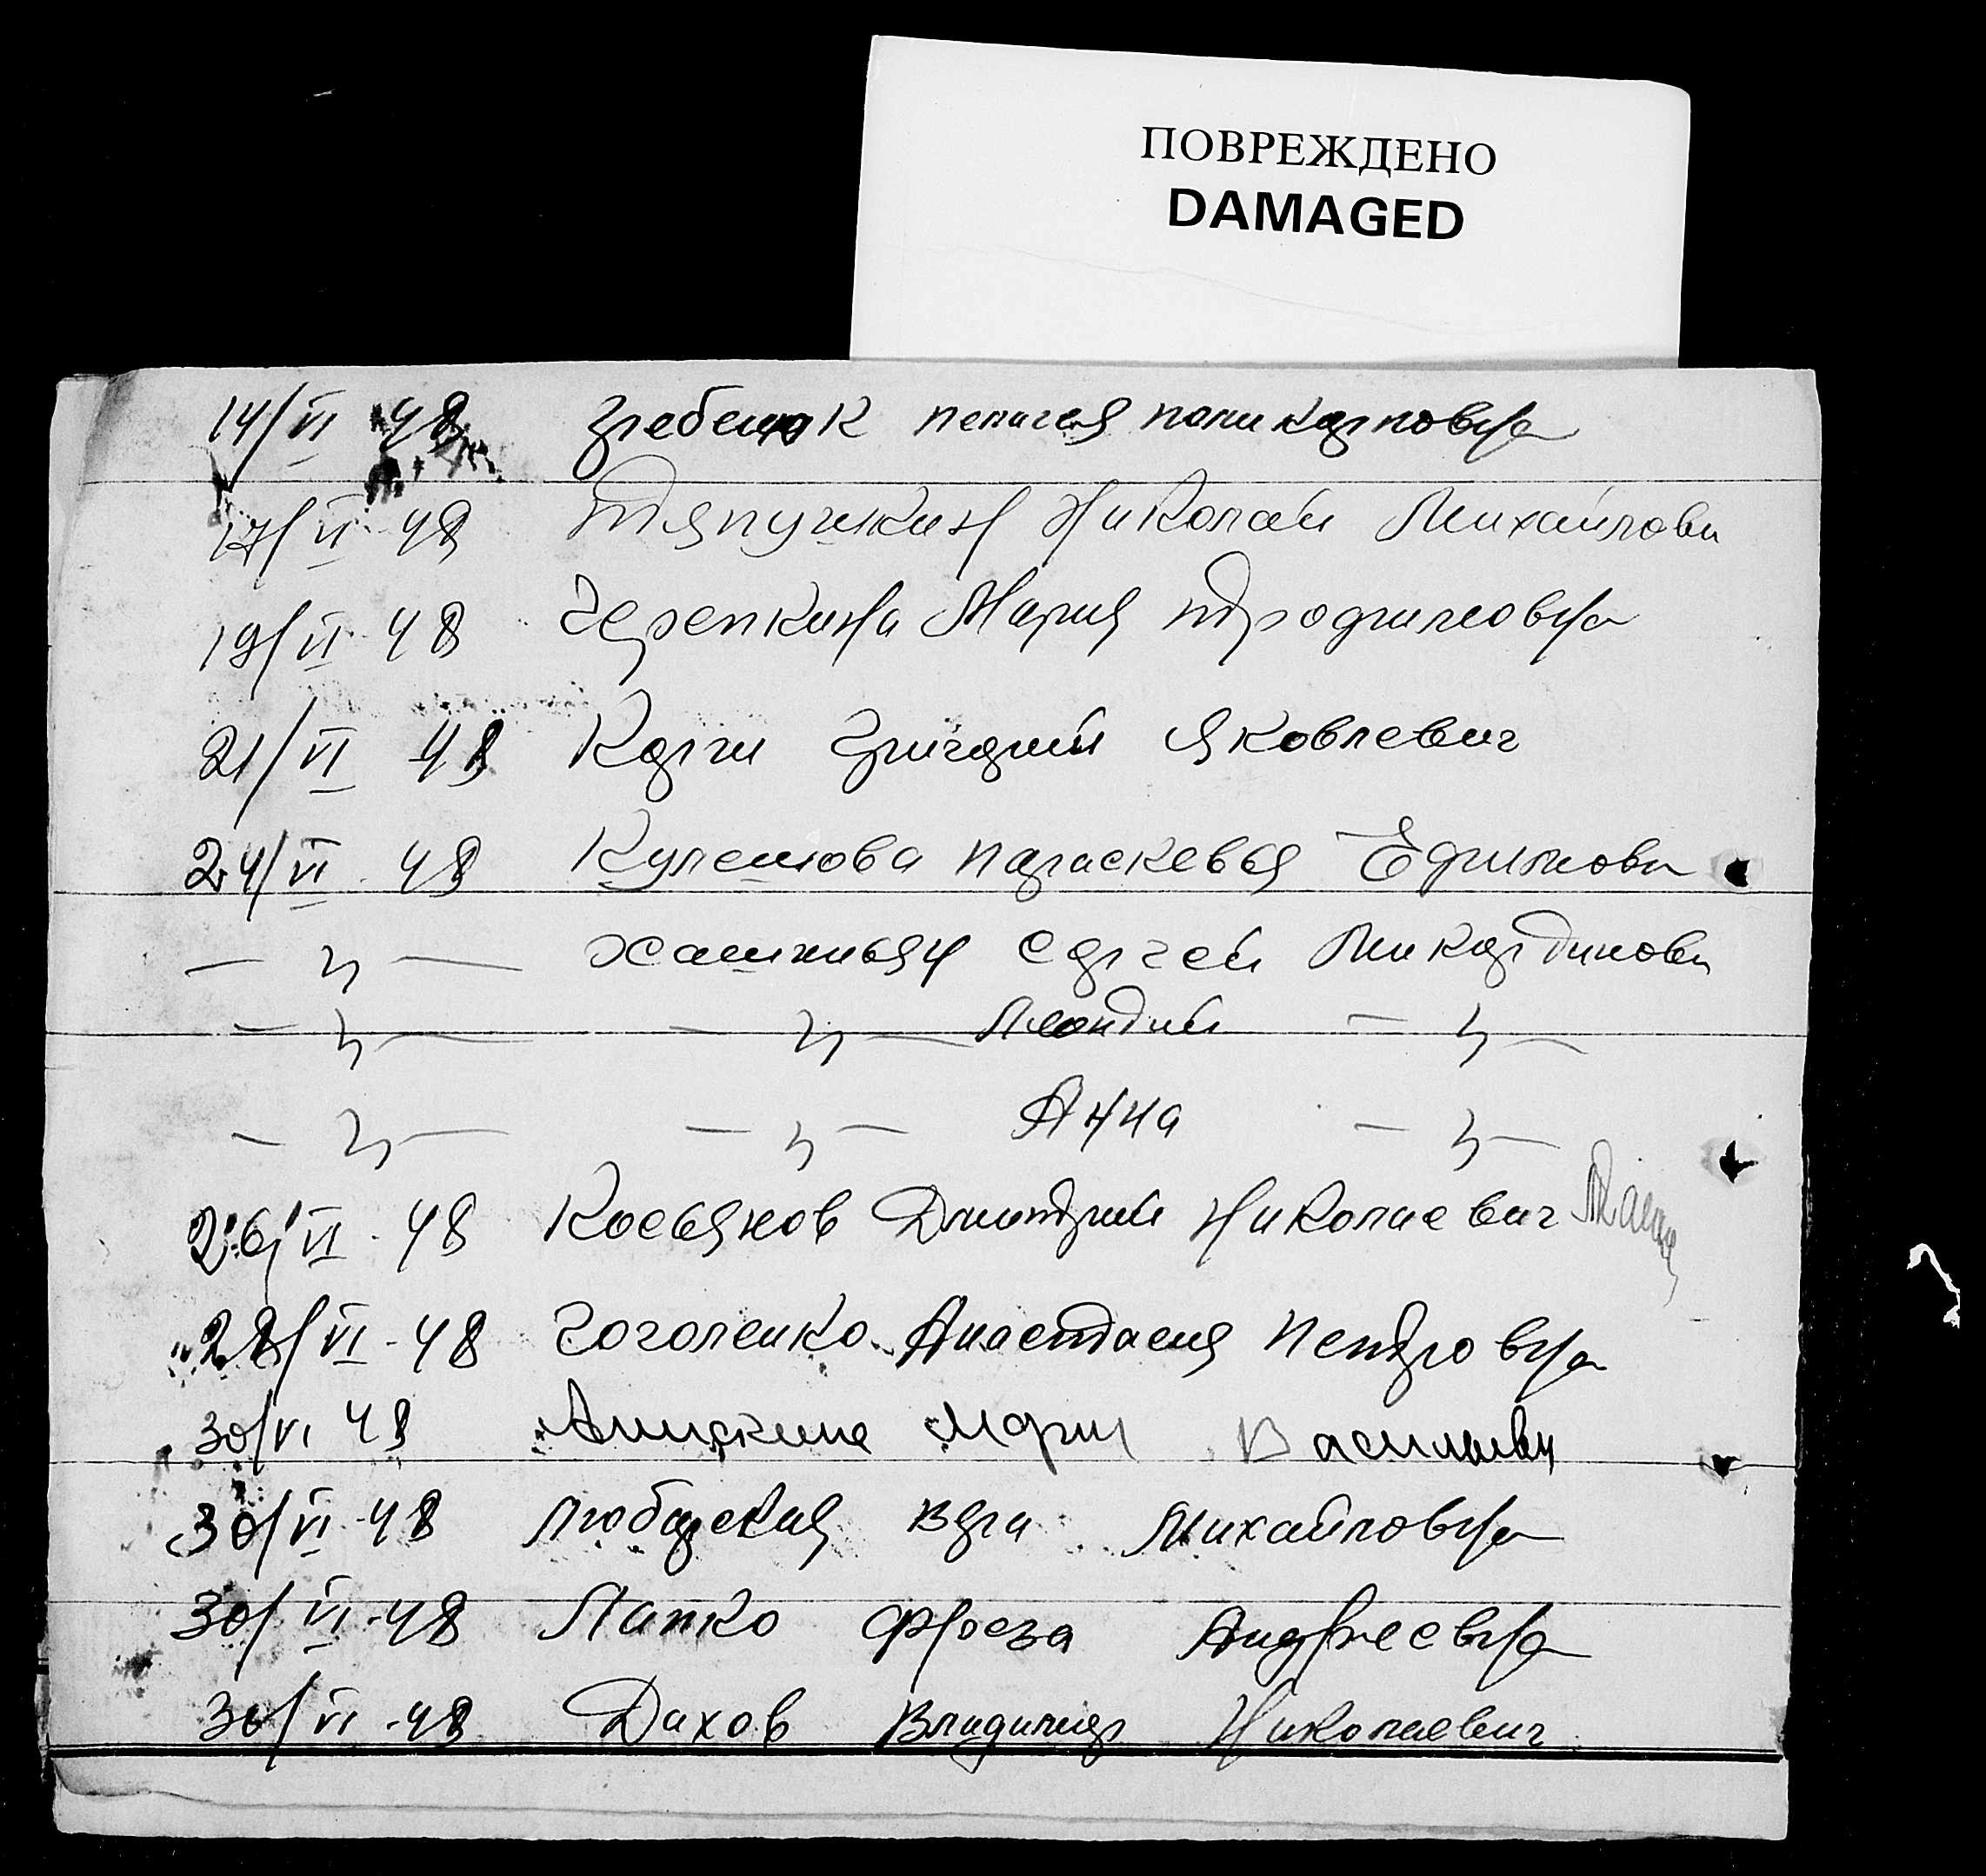 ПОВРЕЖДЕНО
DAMAGED
14/VI 48 Гребенюк Пелагея Поликарповна
17/VI 48 Тяпушкин Николай Михайлови
19/VI 48 Черепкина Мария Трофимовна
21/VI 48 Григорий Яковлевич
24/VI 48 Кулешова Парасковья Ефимовн
— " — Сергей
— " — — " — — " —
— " — — " — Анна — " —
26/VI 48 Косьянов Дмитрий Николаевич
28/VI-48 Гоголенко Анастасия Петровна
30/VI 48 Анискина Мария Васильевн
30/VI-48 Любарская Вера Михайловна
30/VI-48 Лапко Андреевна
30/VI-48 Дахов Владимир Николаевич